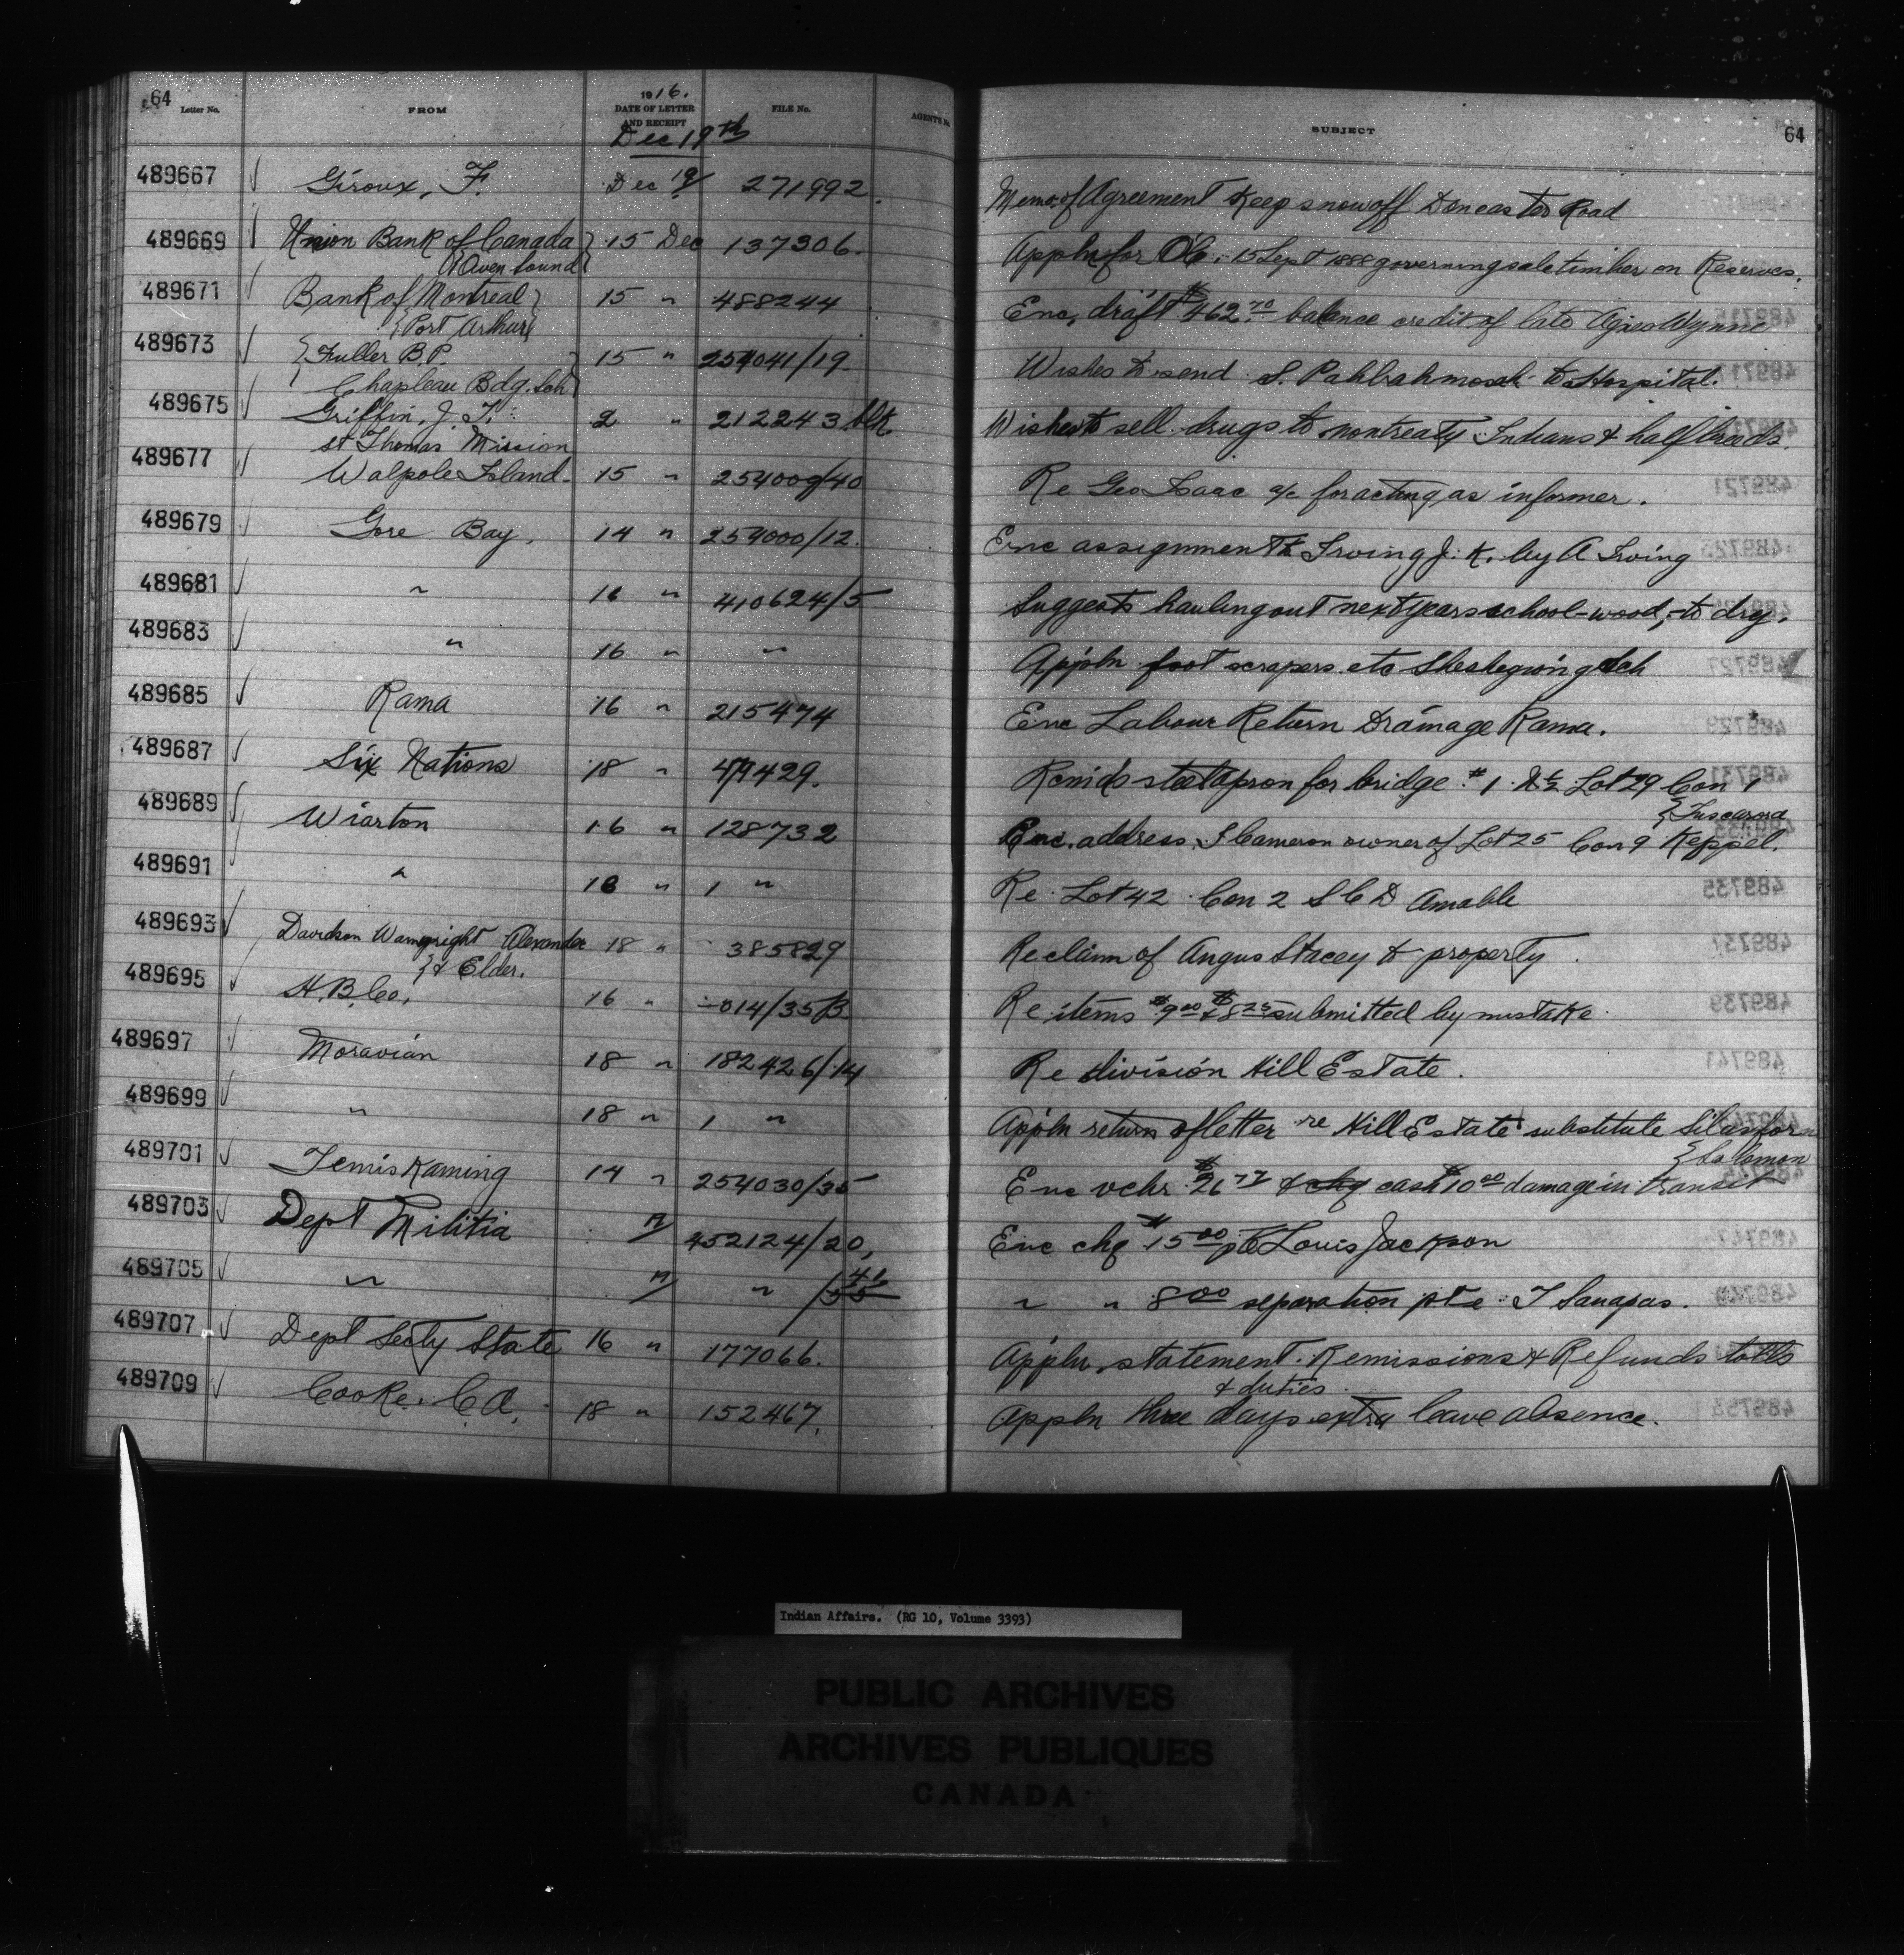 64
Letter No. FROM 1916. DATE OF LETTER AND RECEIPT FILE No. AGENT'S No. SUBJECT 64
Dec 19th
489667 Giroux, F. Dec 19 271992. Memo. of Agreement Keep snow off Doncaster Road
489669 Union Bank of Canada 15 Dec 137306. Appln for O/C. 15 Sept 1888 governing sale timber on Reserves.
Owen Sound
489671 Bank of Montreal 15 " 488244 Enc. draft $462.70 balance credit of late Wynne
Port Arthur
489673 Fuller B.P. 15 " 254041/19. Wishes to send S. to Hospital.
Chapleau Bdg. Sch
489675 Griffin, J. T. 2 " 212243 blk. Wishes to sell drugs to nontreaty Indians & halfbreeds.
St Thomas Mission
489677 Walpole Island 15 " 254009/40 Re Geo Isaac a/c for acting as informer.
489679 Gore Bay, 14 " 254000/12. Enc assignment to Irving J. K. by A Irving
489681 " 16 " 410624/5 Suggests hauling out next years school-wood, - to dry.
489683 " 16 " " Appln foot scrapers etc Sheshegwoning Sch
489685 Rama 16 " 215474 Enc Labour Return Drainage Rama.
489687 Six Nations 18 " 479429. steel apron for bridge #1 ½ Lot 29 Con 1
Tuscarora
489689 Wiarton 16 " 128732 Enc. address. S Cameron owner of Lot 25 Con 9 Keppel.
489691 " 18 " 1 " Re Lot 42 Con 2 S C D Amable
489693 Davidson Wainwright Alexander 18 " 385829 Re claim of Angus Stacey to property.
& Elder.
489695 H.B. Co. 16 " -014/35B Re items $9.00 & $8.25 submitted by mistake.
489697 Moravian 18 " 182426/14 Re division Hill Estate.
489699 " 18 " 1 " Appln return of letter re Hill Estate substitute Silas for
Solomon
489701 Temiskaming 14 " 254030/35 Enc vchr $26.77 & chq cash $10.00 damage in transit
489703 Dept Militia " 452124/20, Enc chq $15.00 pte Louis Jackson
489705 " " " " " 8.00 separation pte T Sanapas.
489707 Dept Secty State 16 " 177066. Appln. statement Remissions & Refunds tolls
& duties
489709 Cooke. C A. 18 " 152467. Appln three days extra leave absence.
Indian Affairs. (RG 10, Volume 3393)
PUBLIC ARCHIVES
ARCHIVES PUBLIQUES
CANADA